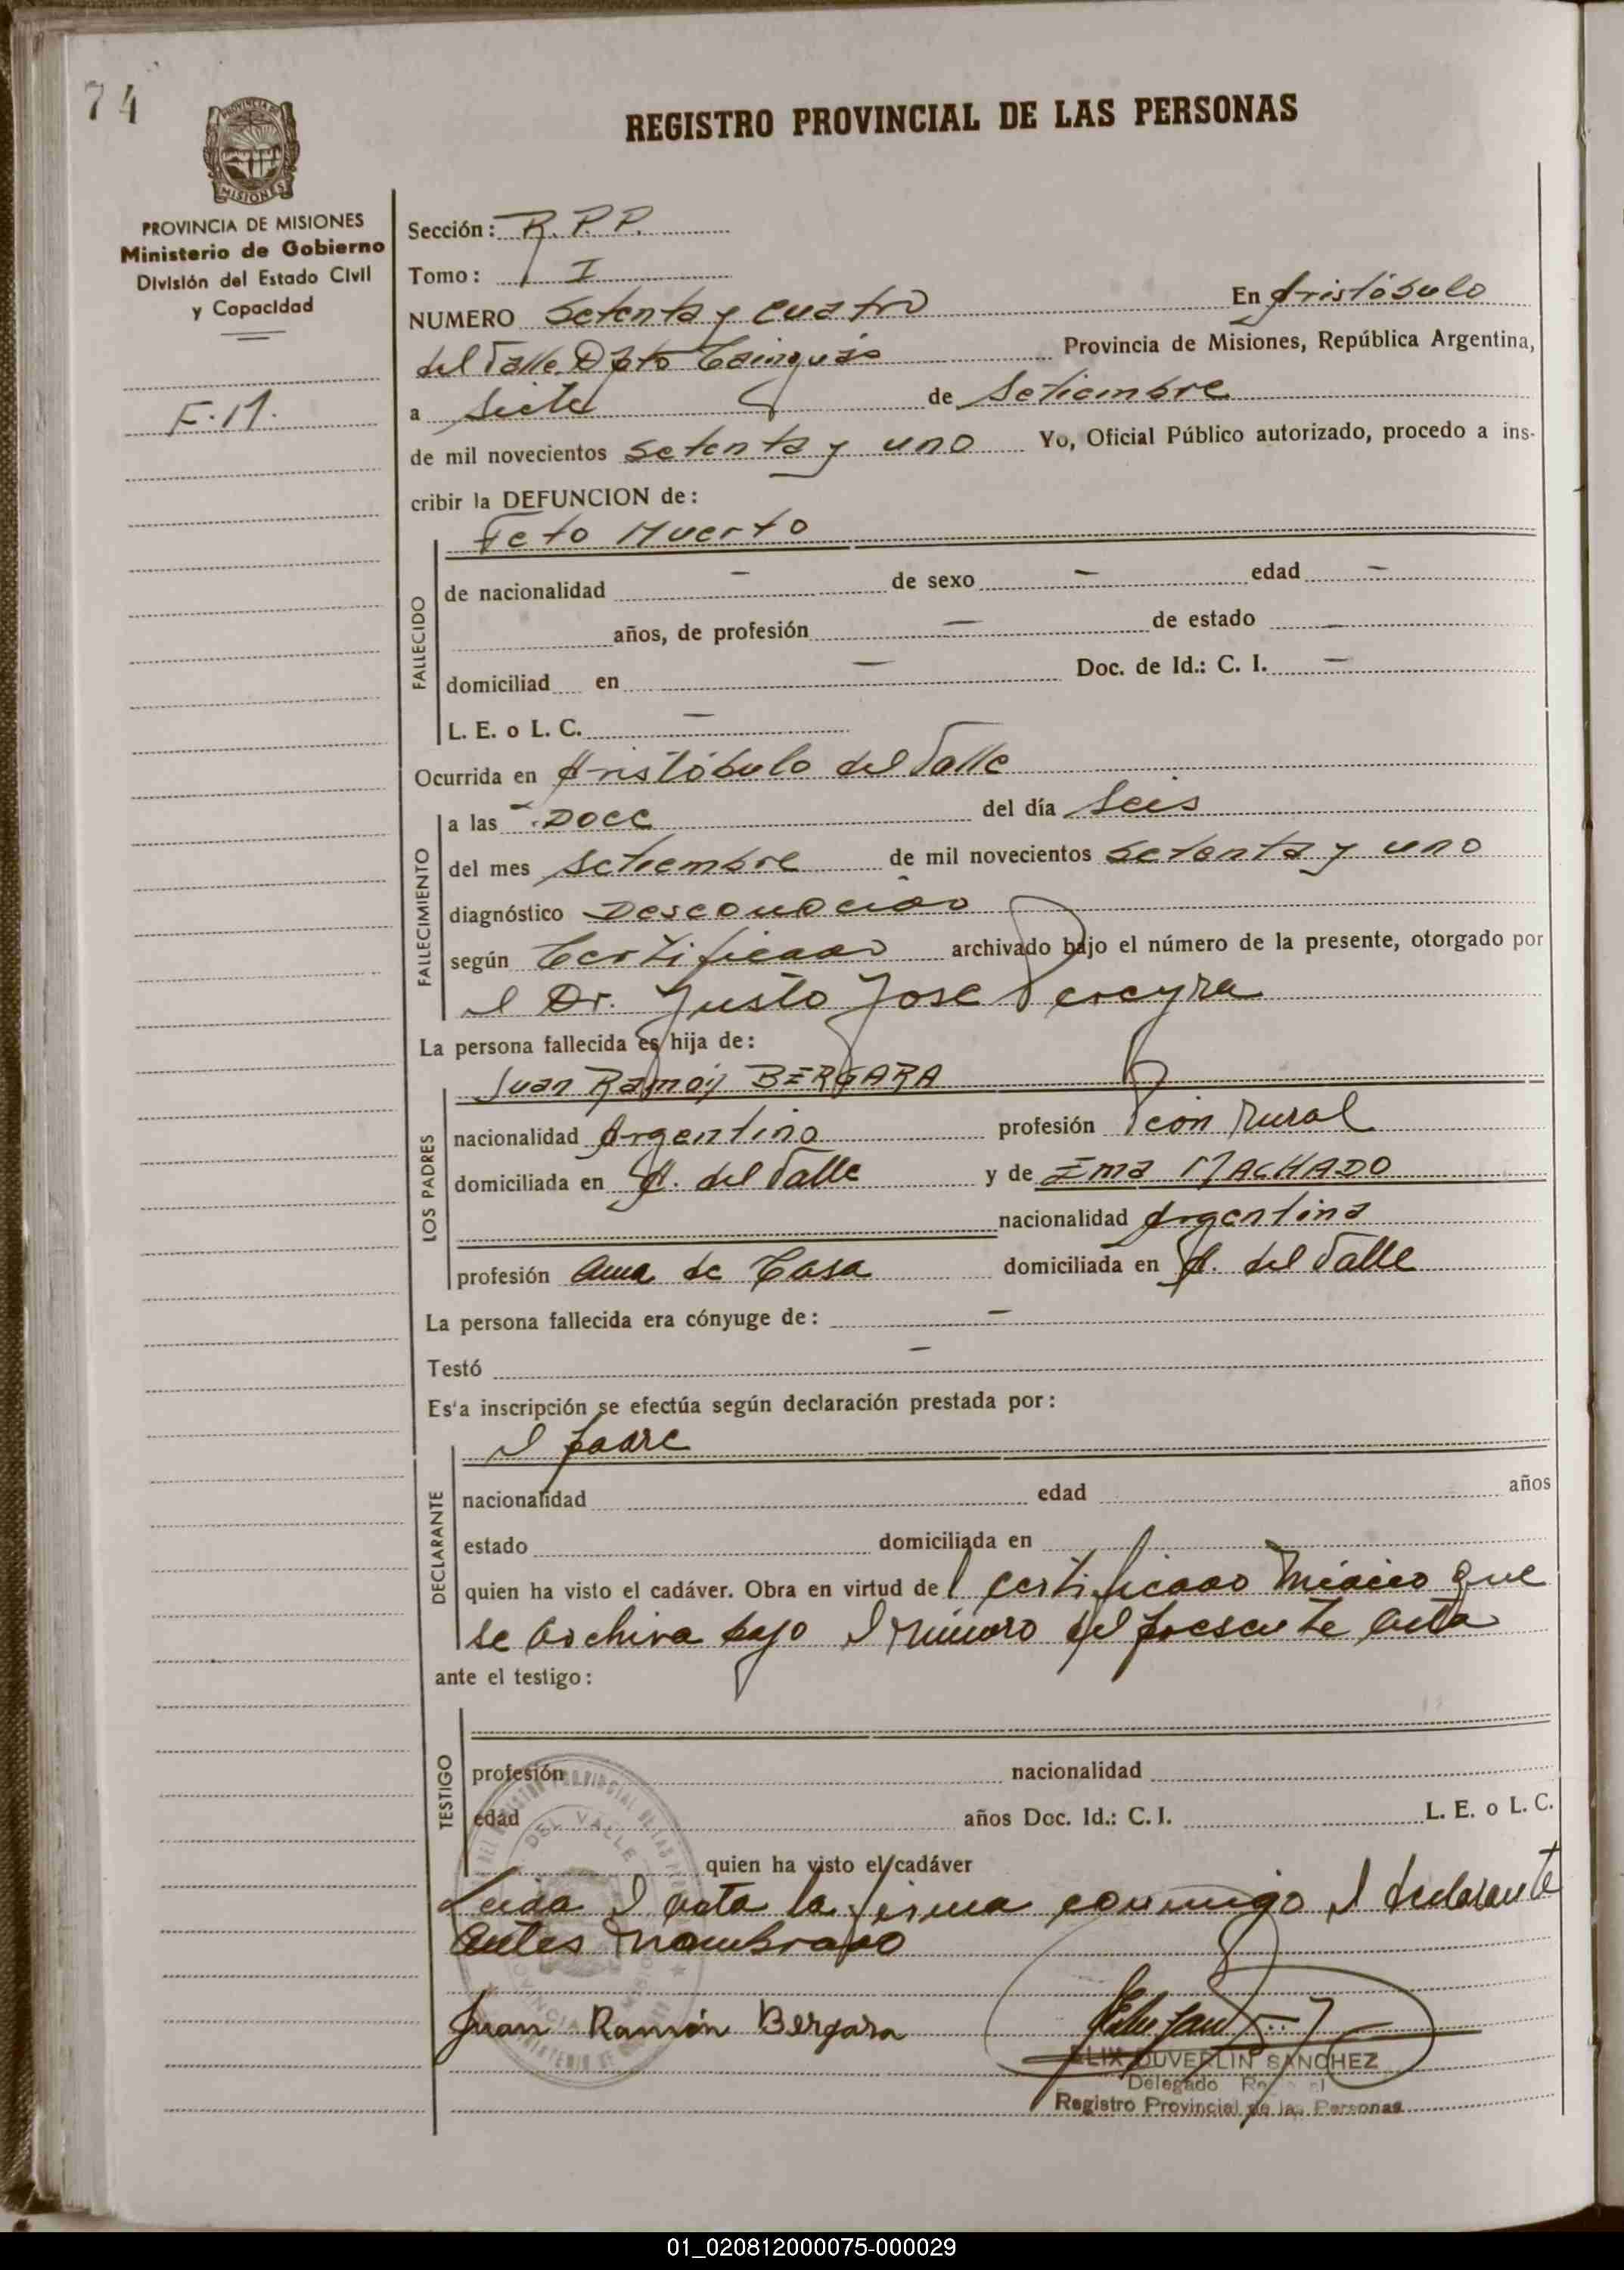 74
PROVINCIA DE
MISIONES
REGISTRO PROVINCIAL DE LAS PERSONAS
PROVINCIA DE MISIONES
Ministerio de Gobierno
División del Estado Civil
y Capacidad
F.M.
Sección: R.P.P.
Tomo: I
NUMERO Setenta y cuatro En Aristóbulo
del Valle Dpto Cainguás Provincia de Misiones, República Argentina,
a Siete de Setiembre
de mil novecientos setenta y uno Yo, Oficial Público autorizado, procedo a ins-
cribir la DEFUNCION de:
Feto Muerto
FALLECIDO
de nacionalidad - de sexo - edad -
años, de profesión - de estado -
domiciliad en - Doc. de Id.: C. I. -
L. E. o L. C. -
Ocurrida en Aristóbulo del Valle
FALLECIMIENTO
a las Doce del día Seis
del mes Setiembre de mil novecientos setenta y uno
diagnóstico Desconocido
según Certificado archivado bajo el número de la presente, otorgado por
el Dr. Justo Jose Pereyra
La persona fallecida es hija de:
Juan Ramón BERGARA
LOS PADRES
nacionalidad Argentina profesión Peón Rural
domiciliada en A. del Valle y de Ema MACHADO
nacionalidad Argentina
profesión Ama de Casa domiciliada en A. del Valle
La persona fallecida era cónyuge de: -
Testó -
Es'a inscripción se efectúa según declaración prestada por:
el padre
DECLARANTE
nacionalidad edad años
estado domiciliada en
quien ha visto el cadáver. Obra en virtud del certificado médico que
se archiva bajo el número del presente acta
ante el testigo:
TESTIGO
profesión nacionalidad
edad años Doc. Id.: C. I. L. E. o L. C.
quien ha visto el cadáver
Leida el acta la firma conmigo el declarante
antes nombrado
DEL VALLE
Juan Ramón Bergara
DUVERLIN SANCHEZ
Delegado
Registro Provincial de las Personas
01_020812000075-000029